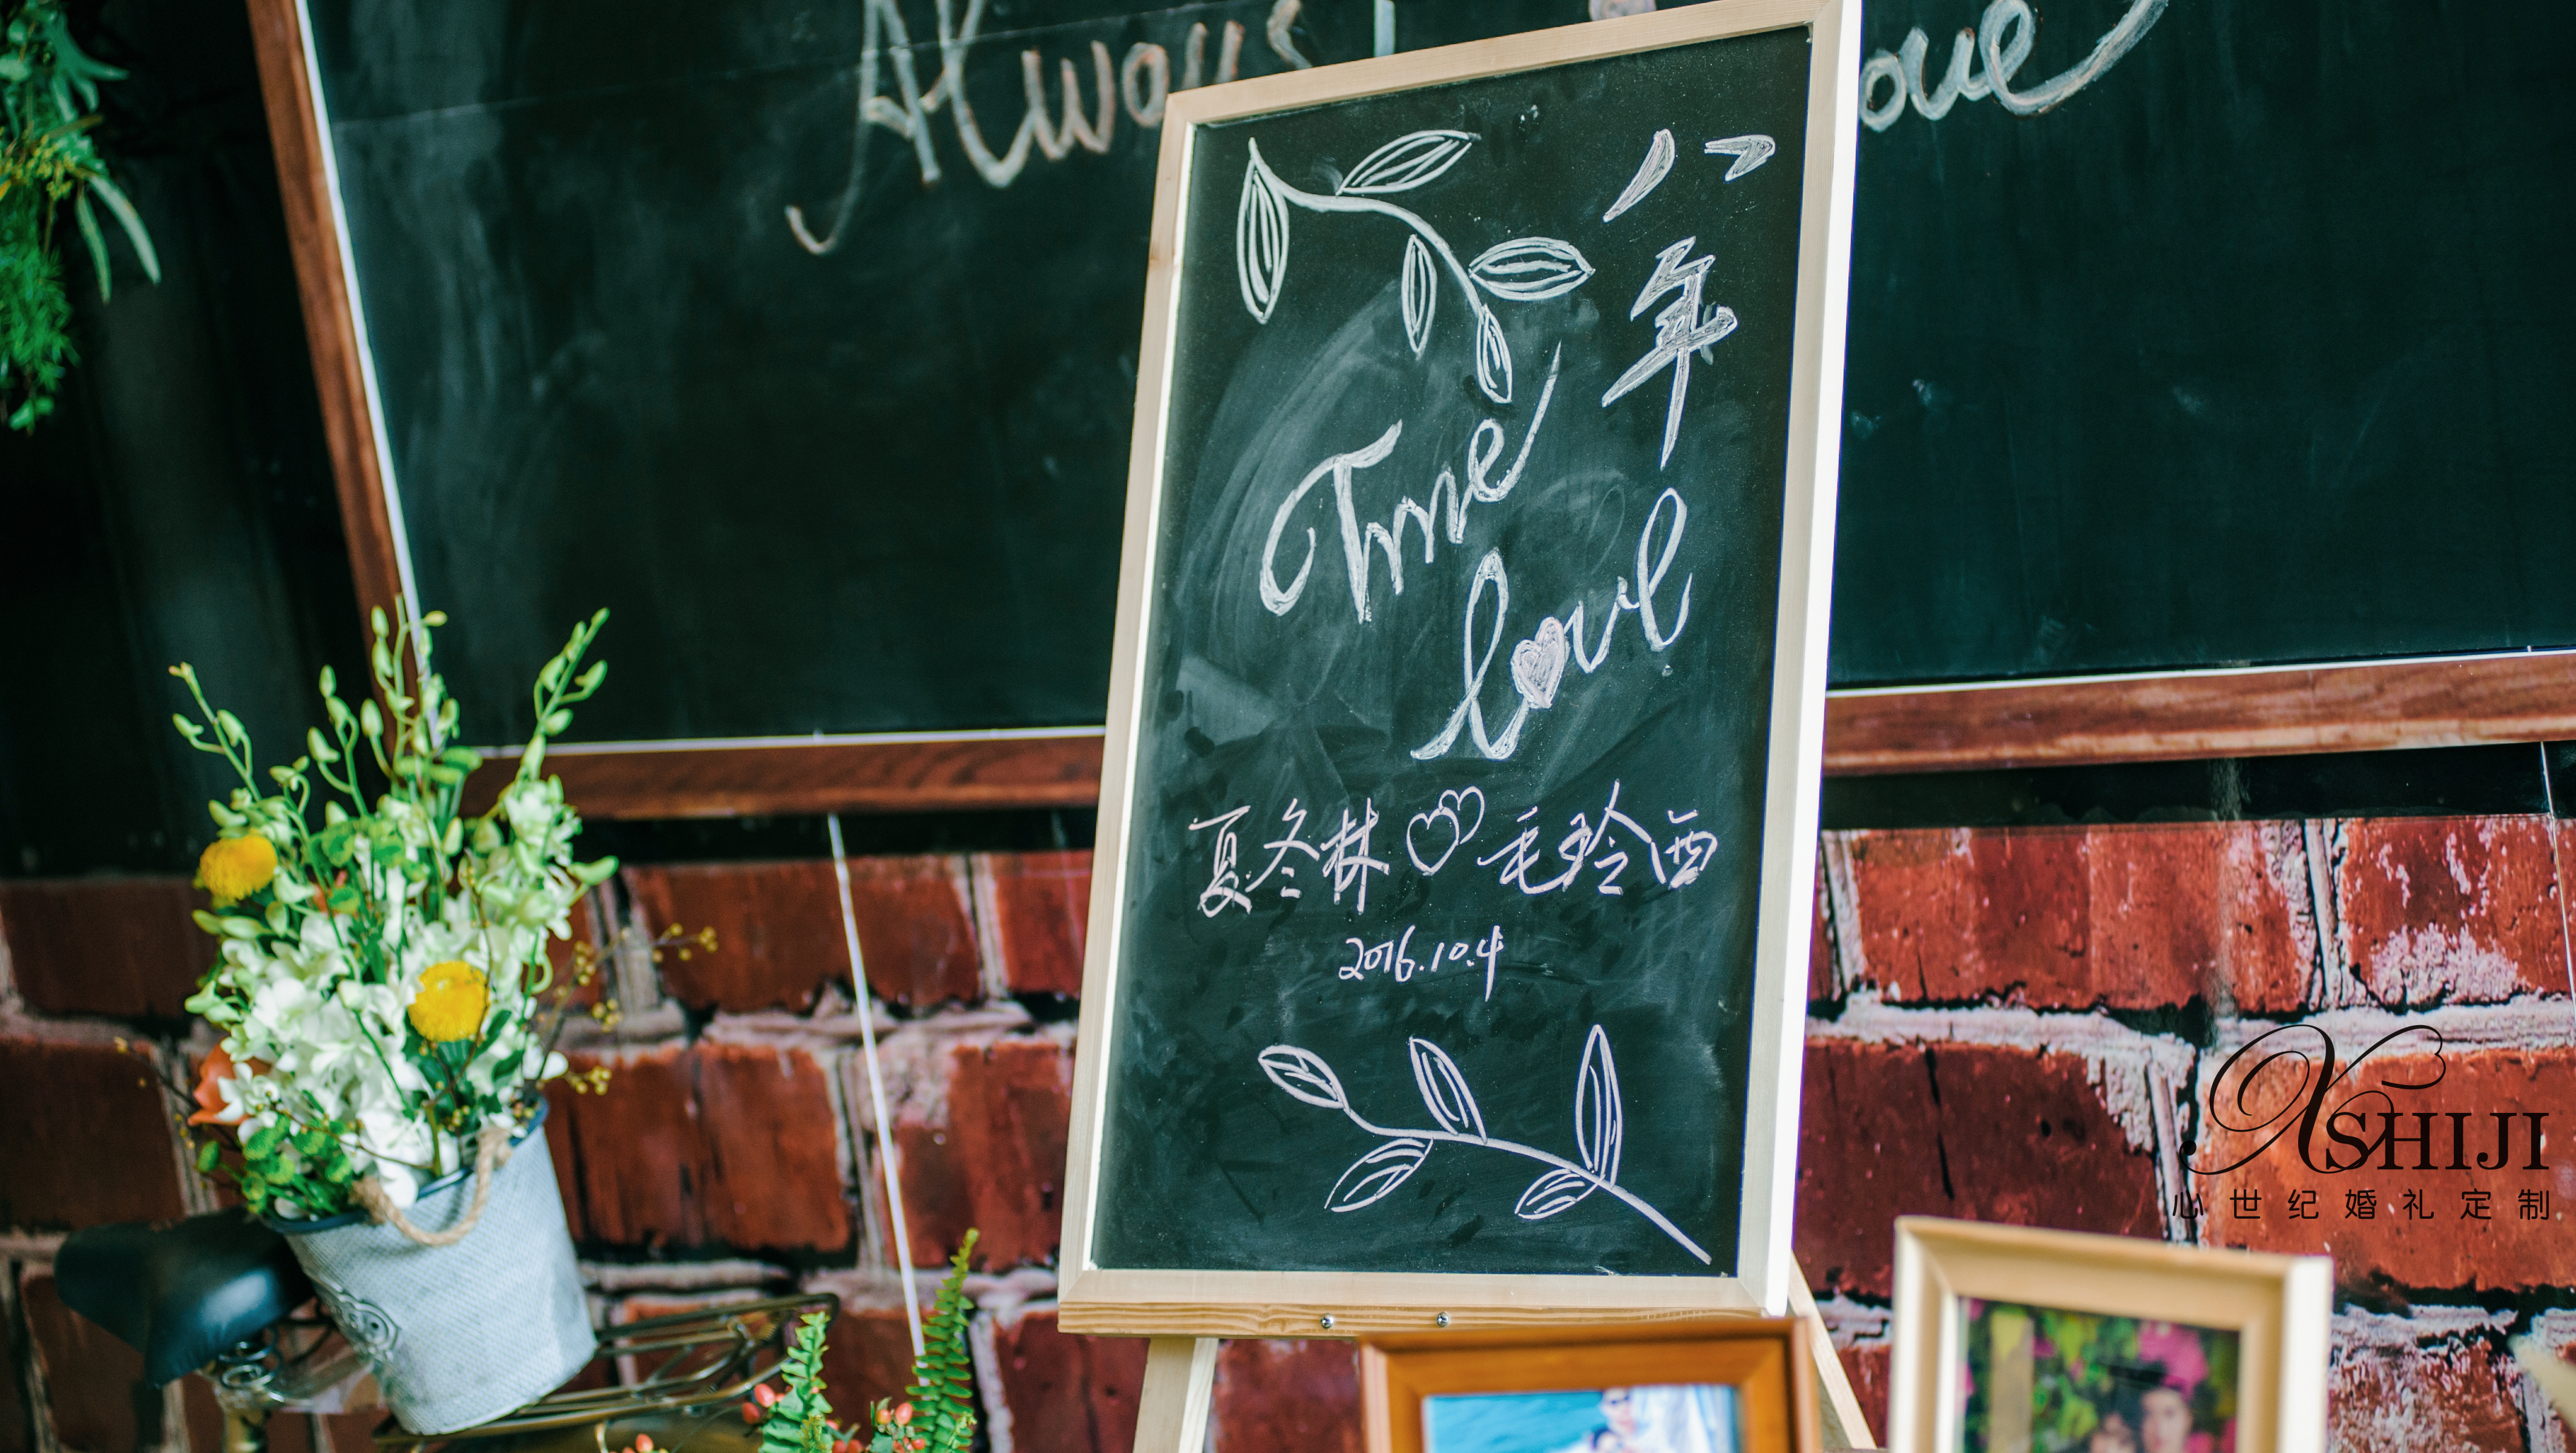 Always
ove
八年
Time
love
夏冬林 毛玲西
2016.10.4
XSHIJI
心世纪婚礼定制